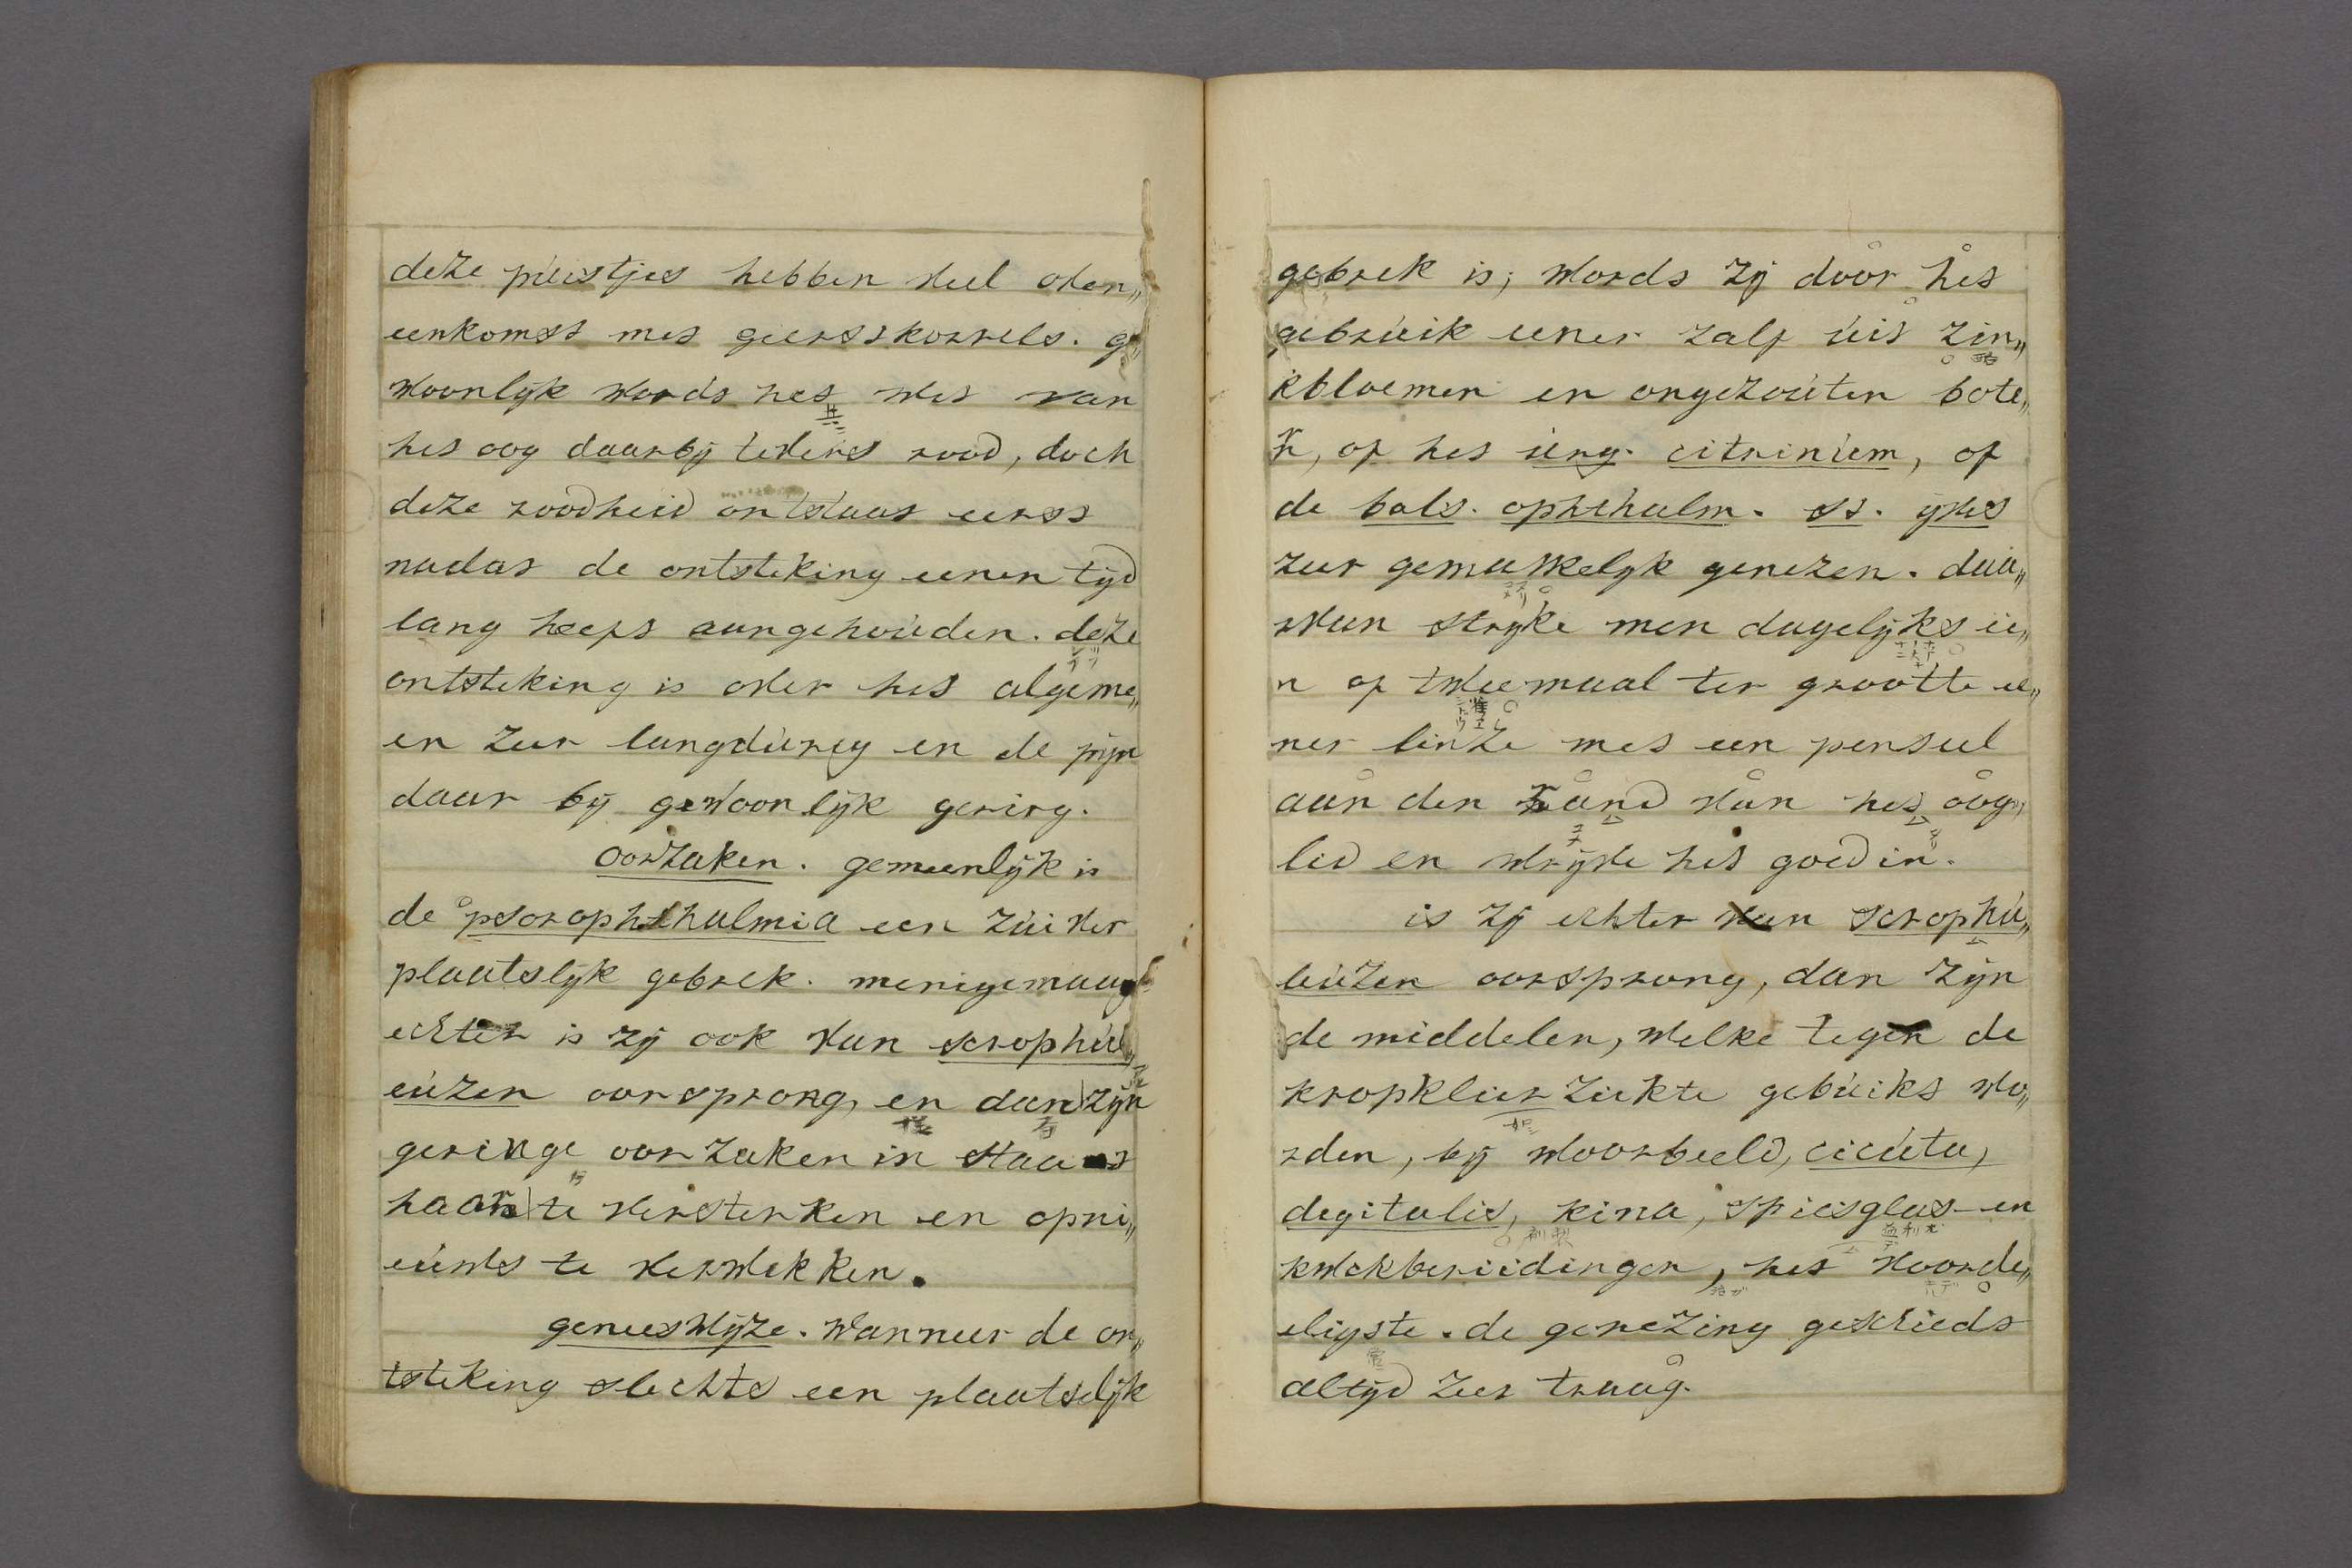 deze puistjes hebben veel oven„
eenkomst met geerstkorrels. g„
woonlyk wordt het wit van
het oog daarbij tevens rood, doch
deze roodheid ontstaat eerst
nadat de ontsteking eenen tijd
lang heeft aangehouden. deze
ontsteking is over het algeme„
en zeer langdureg en de pijn
daar bij gewoonlijk gering.
oorzaken. gemeenlijk is
de psorophthalmia een zuiver
plaatslijk gebrek. menigemaal
echter is zij ook van scrophul„
euzen oorsprong, en dan zijn
geringe oorzaken in staat
haar te versterken en opni„
euws te verwekken.
geneeswijze. wanneer de on„
tsteking slechts een plaatselijk
gebrek is, wordt zij door het
gebruik eener zalf uit zin„
kbloemen en ongezouten bote„
r, of het ung. citrinum, of
de bals. ophthalm. st. yves
zeer gemakkelyk genezen. daa„
rvan stryke men dagelijks ee„
n of tweemaal ter grootte ee„
ner linze met een penseel
aan den rand van het oog„
lid en wrijve het goed in.
is zij echter van scrophu„
leuzen oorsprong, dan zijn
de middelen, welke tegen de
kropklierziekte gebuikt wo„
rden, bij voorbeeld, cicuta,
degitalis, kina, spiesglas- en
kwekbereidingen, het voorde„
eligste. de genezing geschiedt
altijd zeer traag.